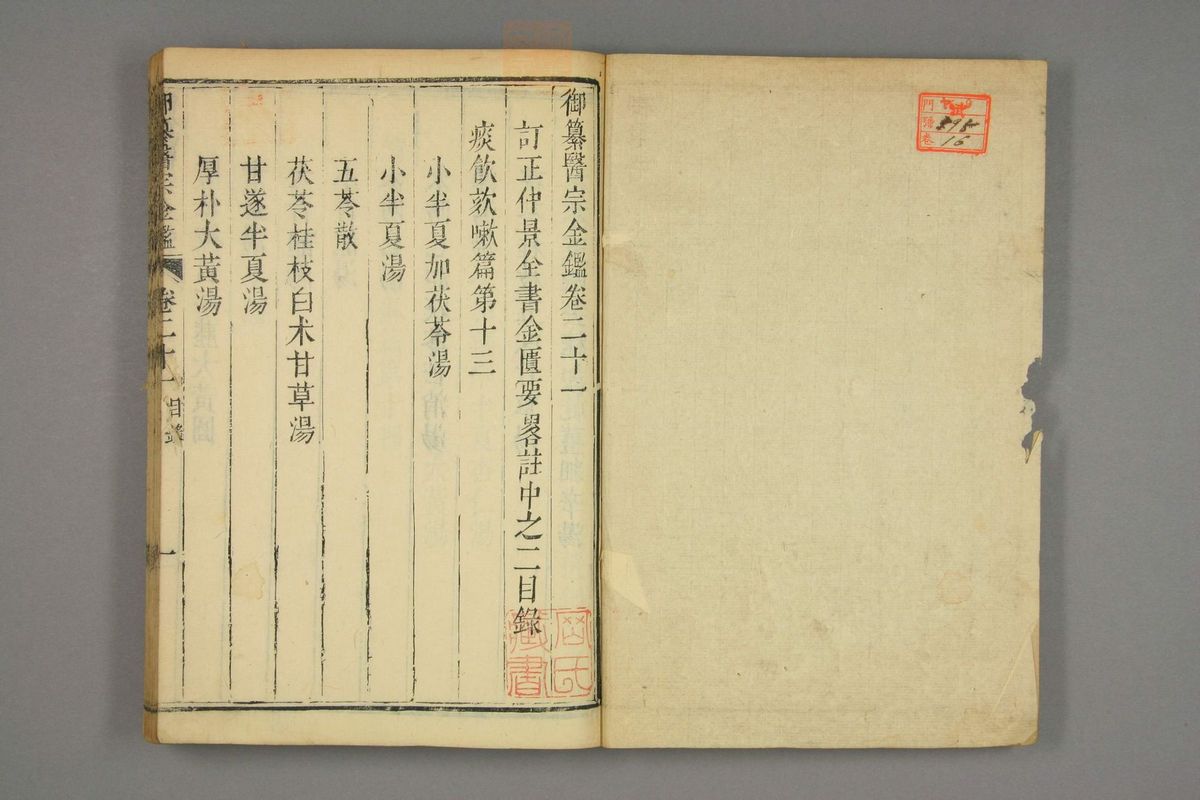 御纂醫宗金鑑卷二十一
訂正仲景全書金匱要畧註中之二目錄
痰飲欬嗽篇第十三
小半夏加茯苓湯
小半夏湯
五苓散
茯苓桂枝白术甘草湯
甘遂半夏湯
厚朴大黃湯
御纂醫宗金鑑 卷二十一 目錄 一
門
卷
16
藏書